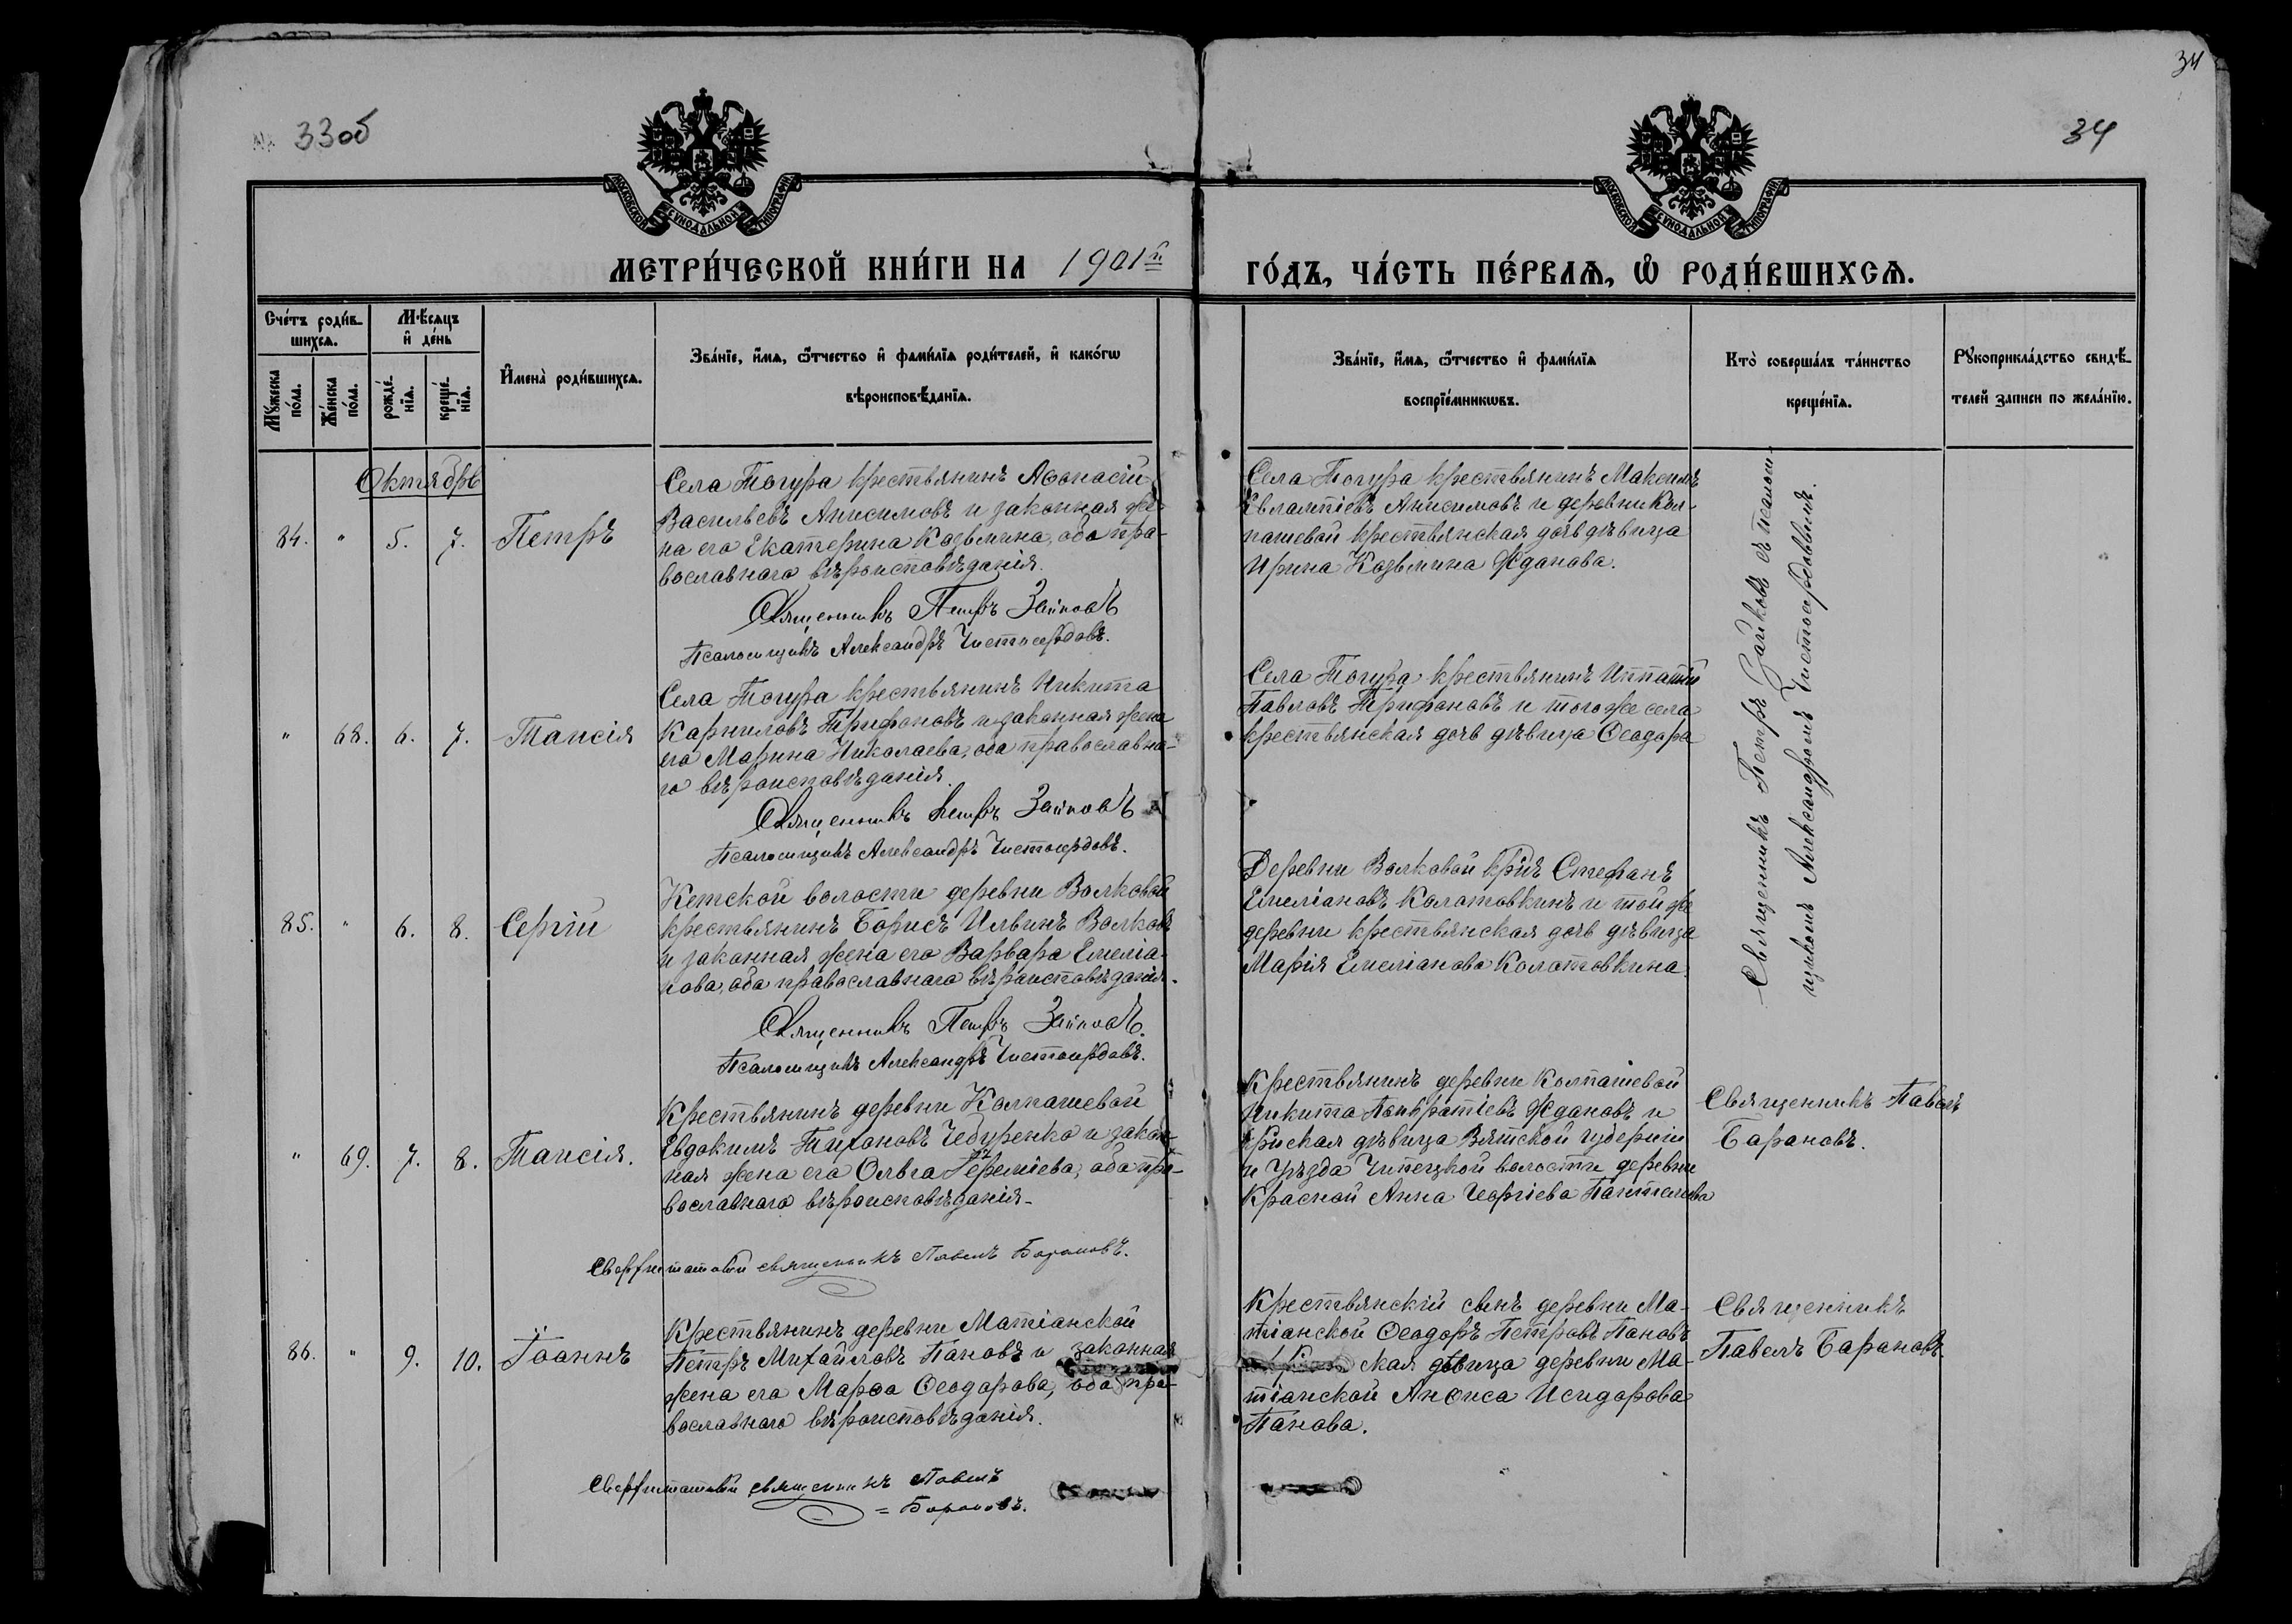 33об
34
34
МОСКОВСКОЙ СУНОДАЛЬНОЙ ТИПОГРАФІИ
МОСКОВСКОЙ СУНОДАЛЬНОЙ ТИПОГРАФІИ
МЕТРИ́ЧЕСКОЙ КНИ́ГИ НА 1901й ГО́ДЪ, ЧА́СТЬ ПЕ́РВАѦ, Ѡ РОДИ́ВШИХСѦ.
Сче́тъ роди́в-
шихсѧ.
Мꙋ́жеска по́ла.
Же́нска по́ла.
Мѣ́сѧцъ
и҆ де́нь
рожде́нїѧ.
креще́нїѧ.
И҆мена̀ роди́вшихсѧ.
Зва́нїе, и҆́мѧ, ѻ҆́тчество и҆ фами́лїѧ роди́телей, и҆ како́гѡ
вѣроисповѣ́данїѧ.
Зва́нїе, и҆́мѧ, ѻ҆́тчество и҆ фами́лїѧ
воспрїе́мникѡвъ.
Кто̀ соверша́лъ та́инство
креще́нїѧ.
Рꙋкоприкла́дство свидѣ́-
телей записи по жела́нїю.
Октябрь
84. " 5. 7. Петръ
Села Тогура крестьянинъ Аѳонасій
Васильевъ Анисимовъ и законная же-
на его Екатерина Козьмина, оба пра-
вославнаго вѣроисповѣданія.
Священникъ Петръ Зайковъ
Псаломщикъ Александръ Чистосердовъ.
Села Тогура крестьянинъ Максимъ
Евлампіевъ Анисимовъ и деревни Кол-
пашевой крестьянская дочь дѣвица
Ирина Козьмина Жданова.
Священникъ Петръ Зайковъ съ псалом-
щикомъ Александромъ Чистосердовымъ.
" 68. 6. 7. Таисія
Села Тогура крестьянинъ Никита
Карниловъ Трифоновъ и законная жена
его Марина Николаева, оба православна-
го вѣроисповѣданія.
Священникъ Петръ Зайковъ
Псаломщикъ Александръ Чистосердовъ.
Села Тогура крестьянинъ Иппатій
Павловъ Трифоновъ и того же села
крестьянская дочь дѣвица Ѳеодора
85. " 6. 8. Сергій
Кетской волости деревни Волковой
крестьянинъ Борисъ Ильинъ Волковъ
и законная жена его Варвара Емеліа-
нова, оба православнаго вѣроисповѣданія.
Священникъ Петръ Зайковъ.
Псаломщикъ Александръ Чистосердовъ.
Деревни Волковой кр͠нъ Стефанъ
Емеліановъ Колотовкинъ и той же
деревни крестьянская дочь дѣвица
Марія Емеліанова Колотовкина.
" 69. 7. 8. Таисія.
Крестьянинъ деревни Колпашевой
Евдокимъ Тихоновъ Чебуренко и закон-
ная жена его Ольга Іереміева, оба пра-
вославнаго вѣроисповѣданія.
Сверхштатный священникъ Павелъ Барановъ.
Крестьянинъ деревни Колпашевой
Никита Панкратіевъ Ждановъ и
дѣвица Вятской губерніи
и уѣзда Чипецкой волости деревни
Красной Анна Георгіева Пантелеева
Священникъ Павелъ
Барановъ.
86. " 9. 10. Іоаннъ
Крестьянинъ деревни Матіанской
Петръ Михайловъ Пановъ и законная
жена его Марѳа Ѳеодорова, оба пра-
вославнаго вѣроисповѣданія.
Сверхштатный священникъ Павелъ
= Барановъ.
Крестьянскій сынъ деревни Ма-
тіанской Ѳеодоръ Петровъ Пановъ
ская дѣвица деревни Ма-
тіанской Анѳиса Исидорова
Панова.
Священникъ
Павелъ Барановъ.